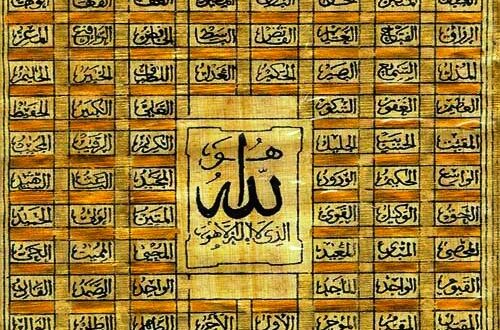 الرزاق الفتاح العليم القابض الباسط الخافض الرافع المعز
المذل السميع البصير الحكم العدل اللطيف الخبير الحليم
العظيم الغفور الشكور العلي الكبير الحفيظ
المقيت الحسيب الجليل الكريم الرقيب المجيب
الواسع الحكيم الودود المجيد الباعث الشهيد
الحق الوكيل القوي المتين الولي الحميد
المحصي المبدئ المعيد المحيي المميت الحي
القيوم الواجد الماجد الواحد الصمد القادر
المؤخر الأول الآخر الظاهر
هو
الله
الذي لا إله إلا هو